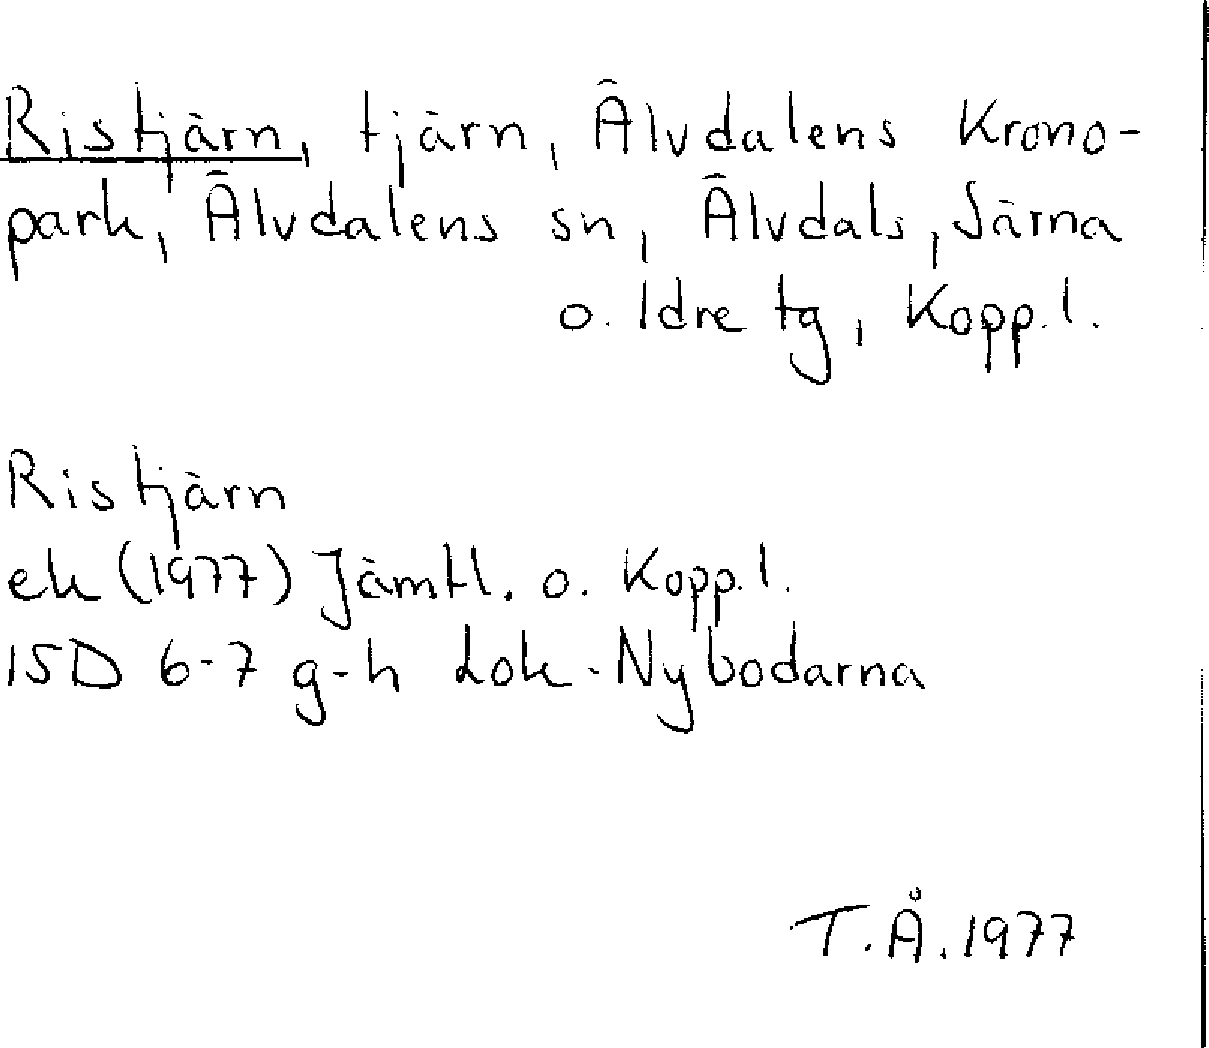 Ristjärn, tjärn, Älvdalens Krono-
park, Älvdalens sn, Älvdals, Särna
o. Idre tg, Kopp. l.
Ristjärn
ek (1977) Jämtl. o. Kopp. l.
15D 6-7 g-h Lok-Nybodarna
T.Å. 1977